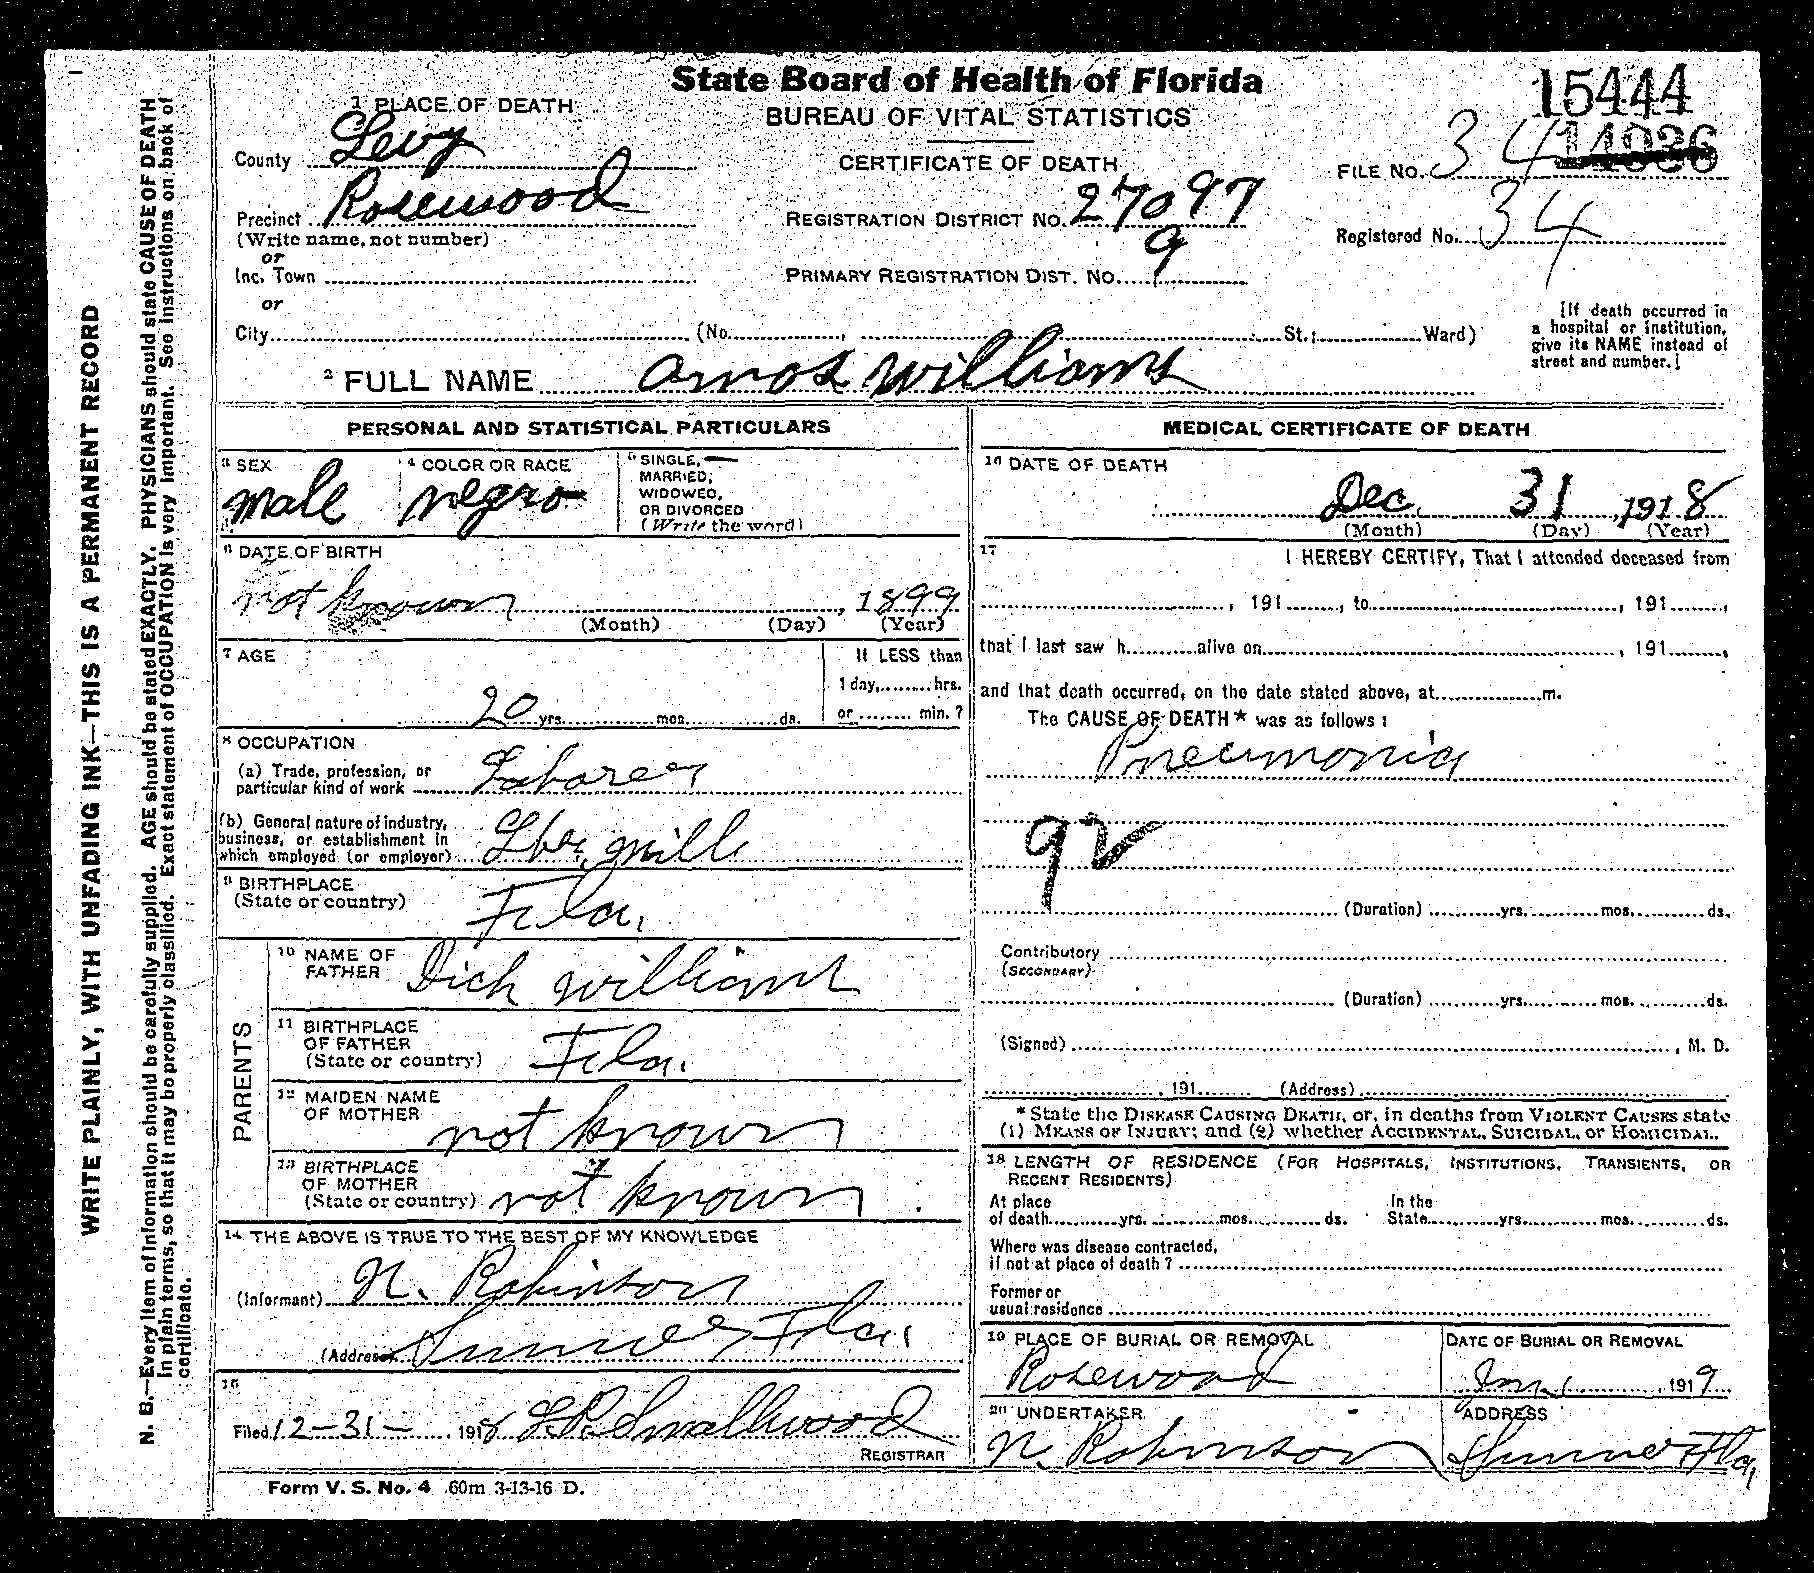 State Board of Health of Florida
BUREAU OF VITAL STATISTICS
CERTIFICATE OF DEATH
15444
14936
1 PLACE OF DEATH
County Levy
Precinct Rosewood
(Write name, not number)
or
Inc. Town
or
City (No. , St.; Ward)
REGISTRATION DISTRICT NO. 27097
PRIMARY REGISTRATION DIST. NO. 9
FILE NO. 34
Registered No. 34
[If death occurred in
a hospital or institution,
give its NAME instead of
street and number.]
2 FULL NAME Amos Williams
PERSONAL AND STATISTICAL PARTICULARS
3 SEX
male
4 COLOR OR RACE
negro
5 SINGLE,
MARRIED,
WIDOWED,
OR DIVORCED
(Write the word)
6 DATE OF BIRTH
not known , 1899
(Month) (Day) (Year)
7 AGE
20 yrs. mos. ds.
If LESS than
1 day, hrs.
or min.?
8 OCCUPATION
(a) Trade, profession, or
particular kind of work Laborer
(b) General nature of industry,
business, or establishment in
which employed (or employer) Lber mill
9 BIRTHPLACE
(State or country) Fla.
PARENTS
10 NAME OF
FATHER Dick Williams
11 BIRTHPLACE
OF FATHER
(State or country) Fla.
12 MAIDEN NAME
OF MOTHER not known
13 BIRTHPLACE
OF MOTHER
(State or country) not known
14 THE ABOVE IS TRUE TO THE BEST OF MY KNOWLEDGE
(Informant) N. Robinson
(Address) Sumner Fla.
15
Filed 12-31- , 1918 Smallwood
REGISTRAR
Form V. S. No. 4 60m 3-13-16 D.
MEDICAL CERTIFICATE OF DEATH
16 DATE OF DEATH
Dec. 31 , 1918
(Month) (Day) (Year)
17
I HEREBY CERTIFY, That I attended deceased from
, 191 , to , 191 ,
that I last saw h alive on , 191 ,
and that death occurred, on the date stated above, at m.
The CAUSE OF DEATH* was as follows:
Pneumonia
92
(Duration) yrs. mos. ds.
Contributory
(SECONDARY)
(Duration) yrs. mos. ds.
(Signed) , M. D.
, 191 (Address)
*State the DISEASE CAUSING DEATH, or, in deaths from VIOLENT CAUSES state
(1) MEANS OF INJURY; and (2) whether ACCIDENTAL, SUICIDAL, or HOMICIDAL.
18 LENGTH OF RESIDENCE (FOR HOSPITALS, INSTITUTIONS, TRANSIENTS, OR
RECENT RESIDENTS)
At place In the
of death yrs. mos. ds. State yrs. mos. ds.
Where was disease contracted,
if not at place of death?
Former or
usual residence
19 PLACE OF BURIAL OR REMOVAL
Rosewood
DATE OF BURIAL OR REMOVAL
Jan. 1 , 1919
20 UNDERTAKER
N. Robinson
ADDRESS
Sumner Fla.
WRITE PLAINLY, WITH UNFADING INK—THIS IS A PERMANENT RECORD
N. B.—Every item of information should be carefully supplied. AGE should be stated EXACTLY. PHYSICIANS should state CAUSE OF DEATH
in plain terms, so that it may be properly classified. Exact statement of OCCUPATION is very important. See instructions on back of
certificate.